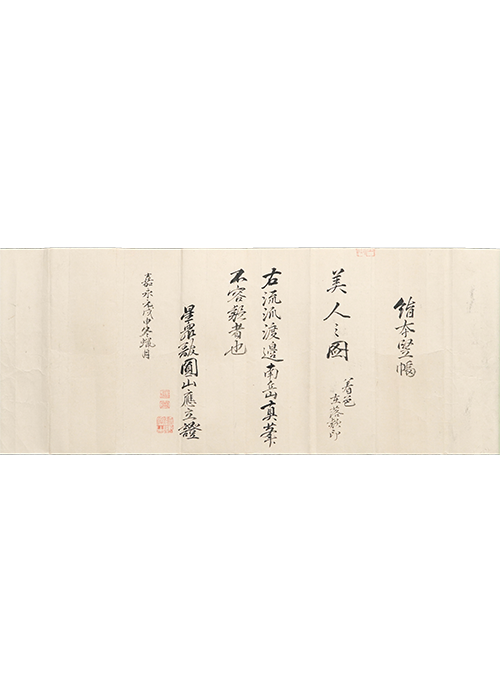 絹本竪幅
美人之圖
着色
在落款印
右流派渡邊南岳真筆
不容疑者也
星聚散圓山應立證
嘉永戊申冬臘月